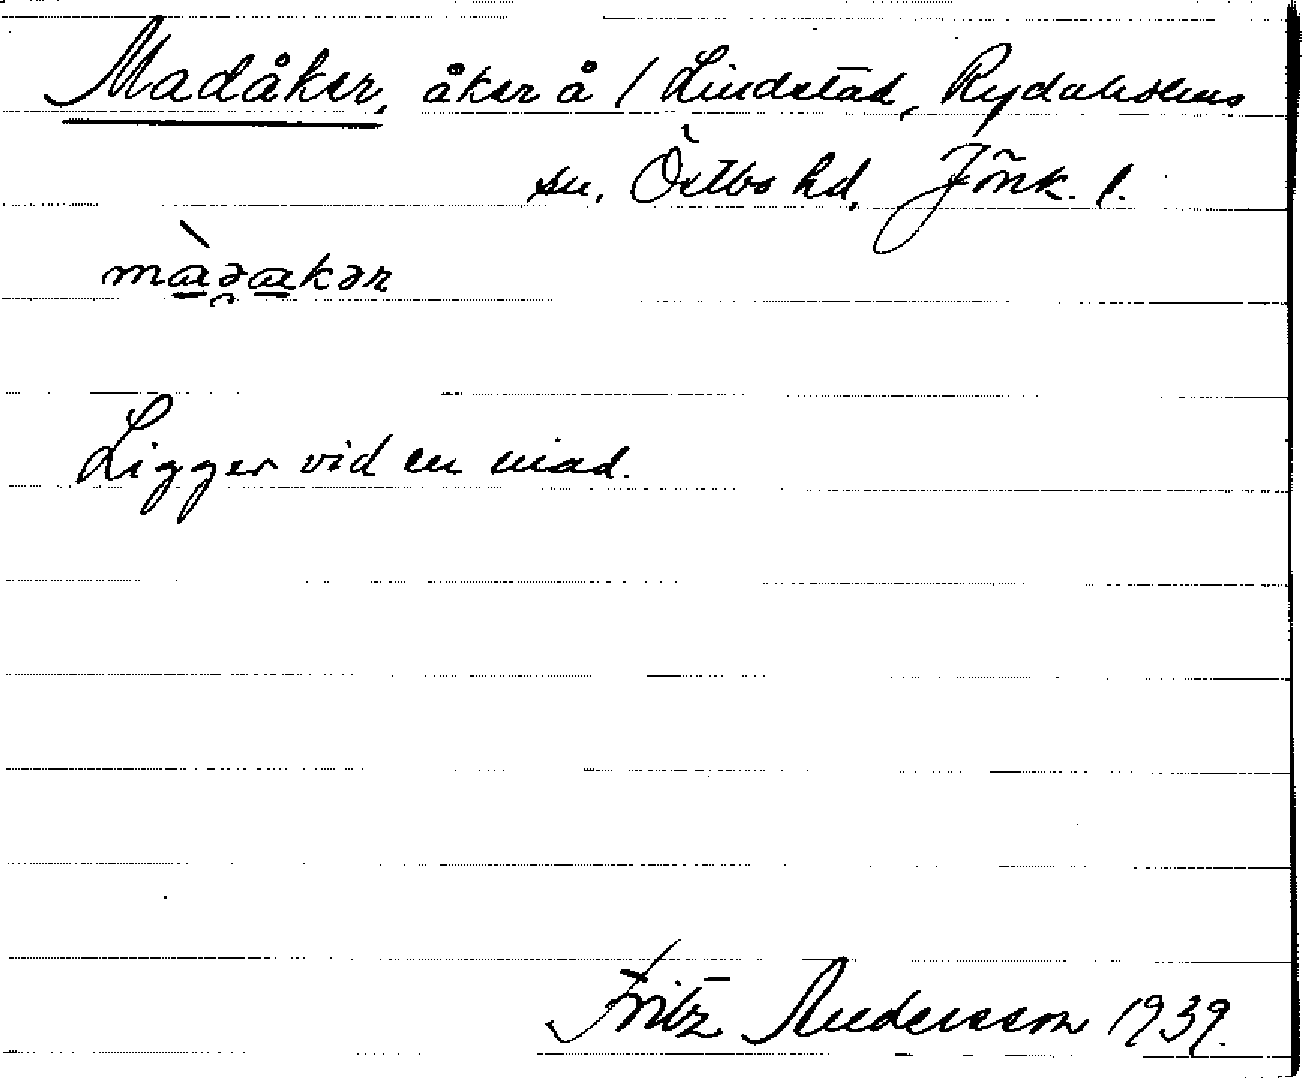 Madåker, åker å / Lindstad, Rydaholms
sn, Östbo hd, Jönk. l.
màəakər
Ligger vid en mad.
Fritz Andersson 1939.